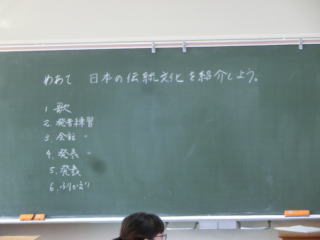 めあて 日本の伝統文化を紹介しよう。
1. 歌
2. 発音練習
3. 会話 〃
4. 発表 〃
5. 発表
6. ふりかえり